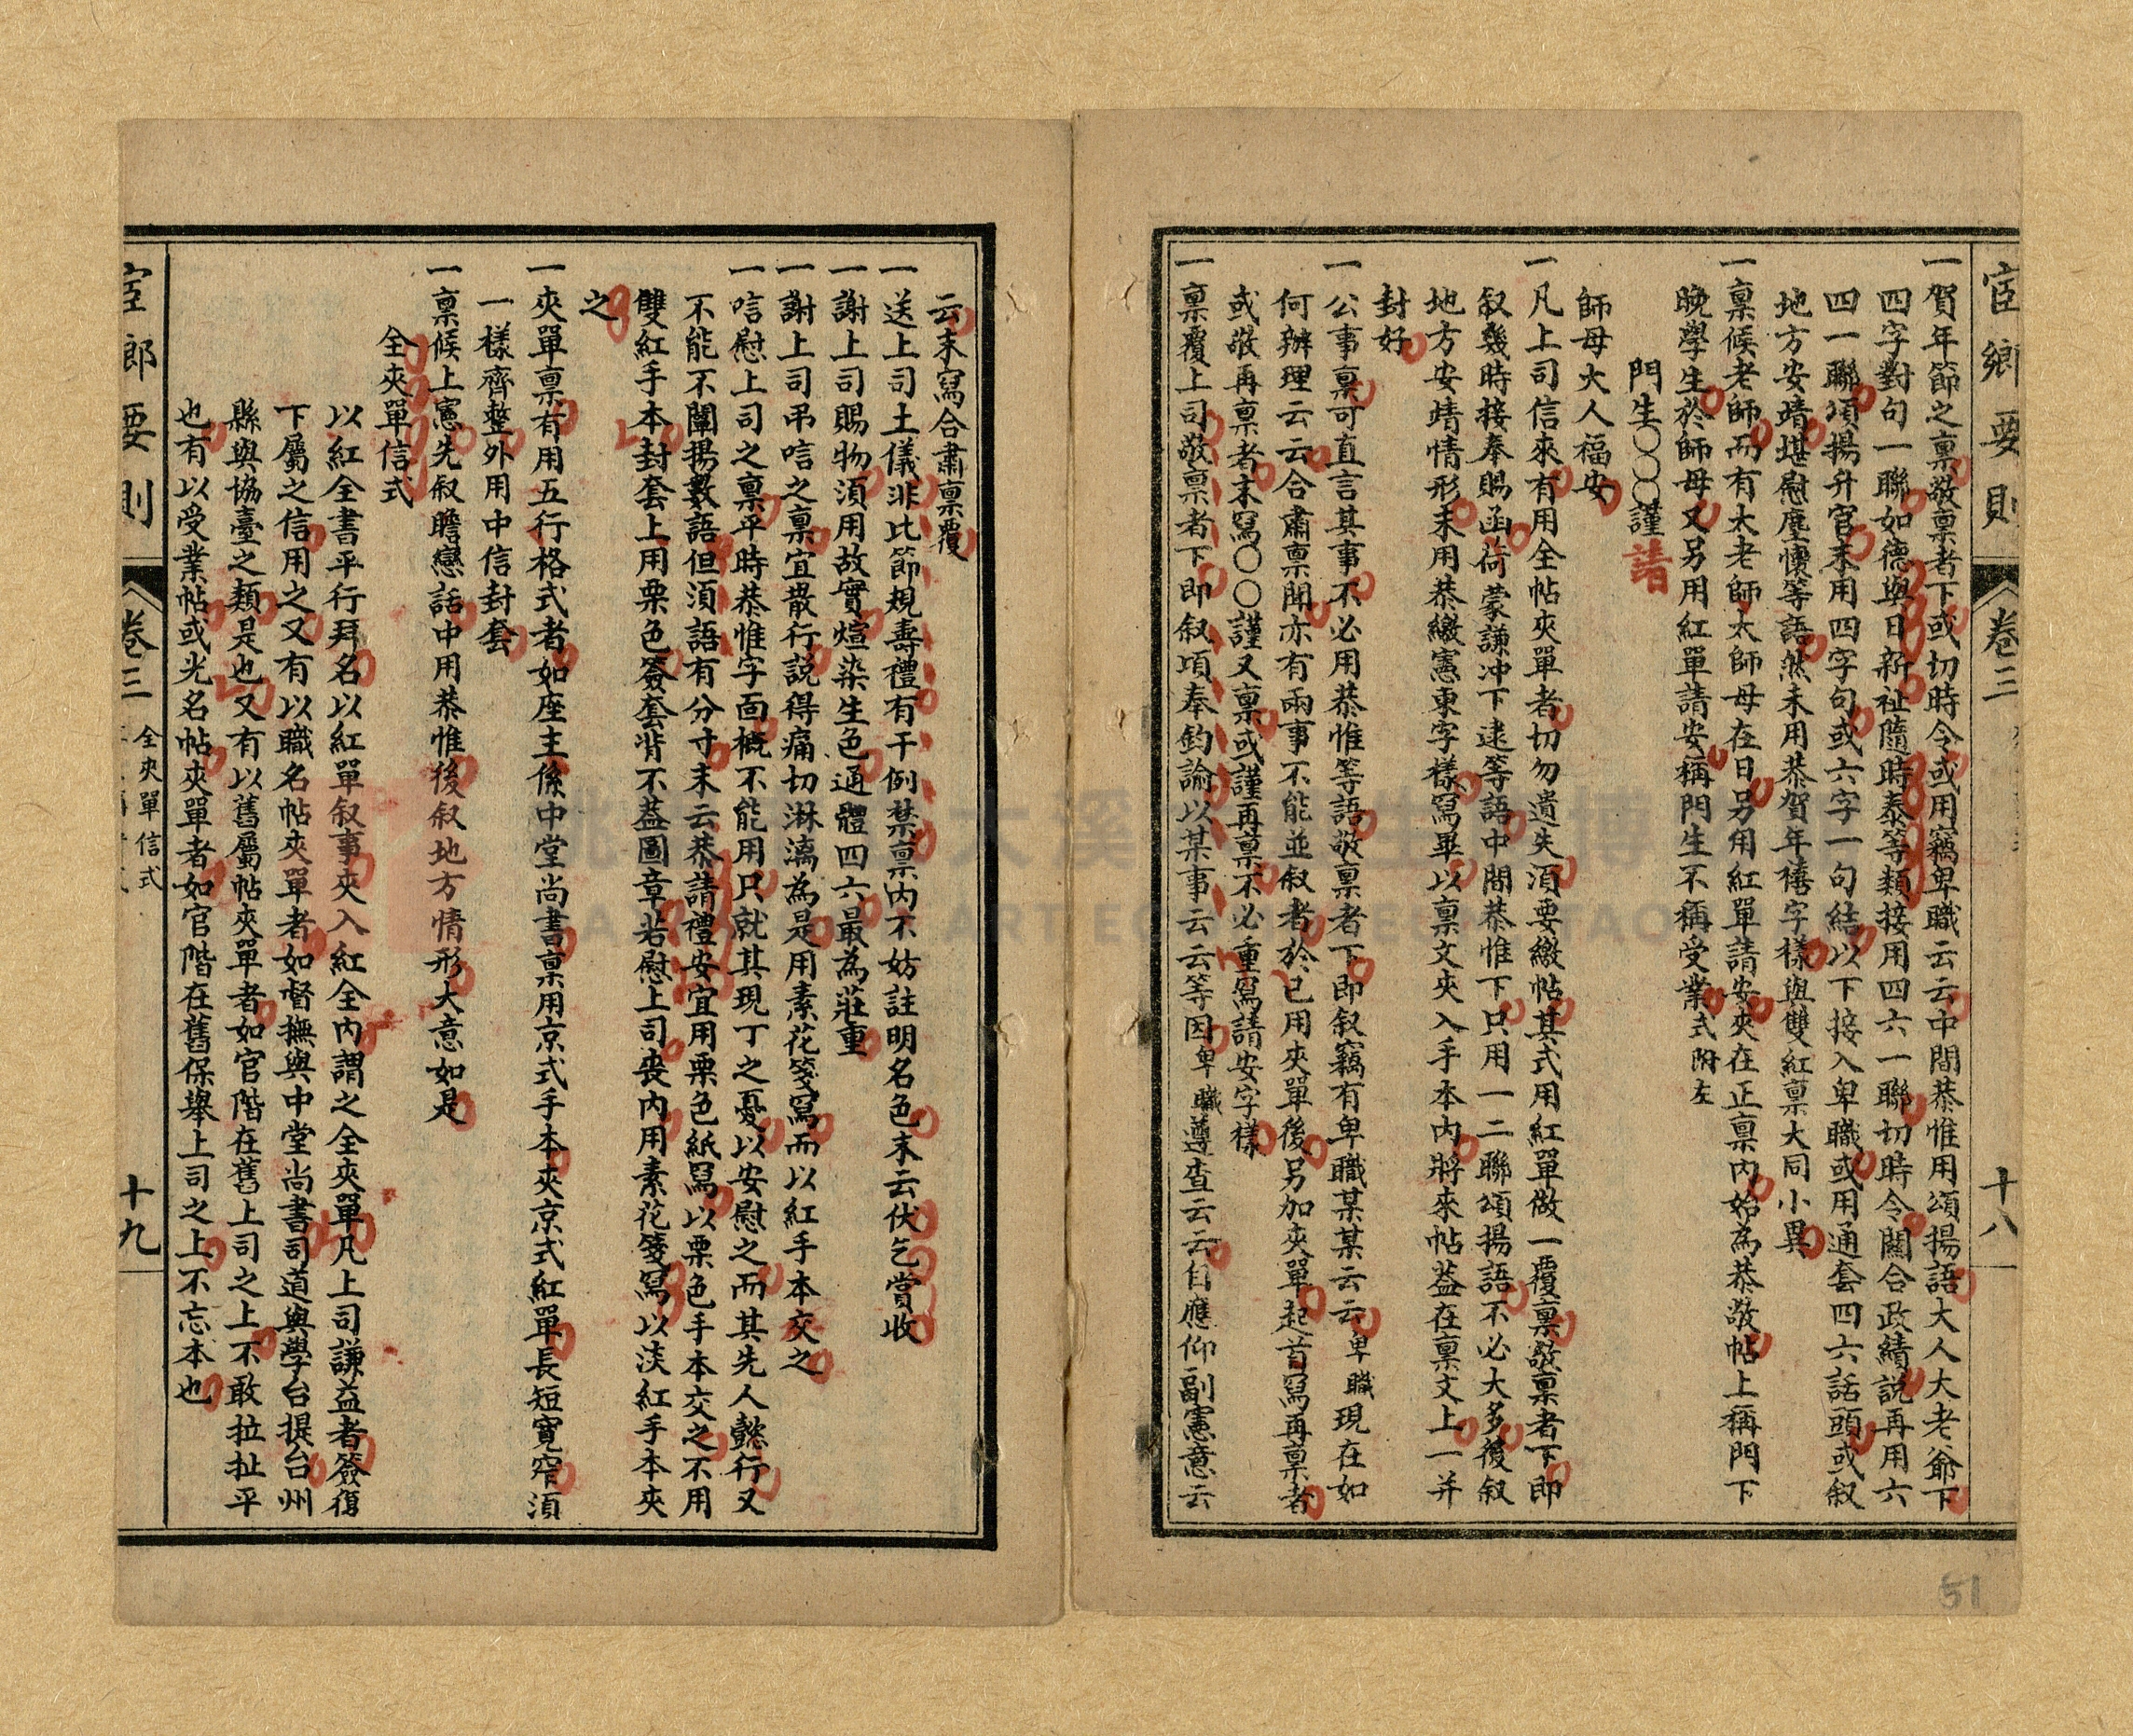 宦鄉要則
卷三
十八
一賀年節之稟敬稟者下或切時令或用竊卑職云云中間恭惟用頌揚語大人大老爺下
四字對句一聯如德與日新祉隨時泰等類接用四六一聯切時令關合政績說再用六
四一聯頌揚升官末用四字句或六字一句結以下接入卑職或用通套四六話頭或叙
地方安靖堪慰塵懷等語然末用恭賀年禧字樣與雙紅稟大同小異
一稟候老師而有太老師太師母在日另用紅單請安夾在正稟內始為恭敬帖上稱門下
晚學生於師母又另用紅單請安稱門生不稱受業式附左
門生〇〇〇謹請
師母大人福安
一凡上司信來有用全帖夾單者切勿遺失須要繳帖其式用紅單做一覆稟敬稟者下即
叙幾時接奉賜函荷蒙謙冲下逮等語中間恭惟下只用一二聯頌揚語不必大多後叙
地方安靖情形末用恭繳憲柬字樣寫畢以稟文夾入手本內將來帖葢在稟文上一并
封好
一公事稟可直言其事不必用恭惟等語敬稟者下即叙竊有卑職某某云云卑職現在如
何辦理云云合肅稟聞亦有兩事不能並叙者於已用夾單後另加夾單起首寫再稟者
或敬再稟者末寫〇〇謹又稟或謹再稟不必重寫請安字樣
一稟覆上司敬稟者下即叙項奉鈞諭以某事云云等因卑職遵查云云自應仰副憲意云
云末寫合肅稟覆
一送上司土儀非比節規壽禮有干例禁稟內不妨註明名色末云伏乞賞收
一謝上司賜物須用故實煊染生色通體四六最為莊重
一謝上司弔唁之稟宜散行說得痛切淋漓為是用素花箋寫而以紅手本交之
一唁慰上司之稟平時恭惟字面概不能用只就其現丁之憂以安慰之而其先人懿行又
不能不闡揚數語但須語有分寸末云恭請禮安宜用栗色紙寫以栗色手本交之不用
雙紅手本封套上用栗色簽套背不葢圖章若慰上司喪內用素花箋寫以淡紅手本夾
之
一夾單稟有用五行格式者如座主係中堂尚書稟用京式手本夾京式紅單長短寬窄須
一樣齊整外用中信封套
一稟候上憲先叙瞻戀話中用恭惟後叙地方情形大意如是
全夾單信式
以紅全書平行拜名以紅單叙事夾入紅全內謂之全夾單凡上司謙益者簽復
下屬之信用之又有以職名帖夾單者如督撫與中堂尚書司道與學台提台州
縣與協臺之類是也又有以舊屬帖夾單者如官階在舊上司之上不敢拉扯平
也有以受業帖或光名帖夾單者如官階在舊保舉上司之上不忘本也
宦鄉要則
卷三
全夾單信式
十九
51